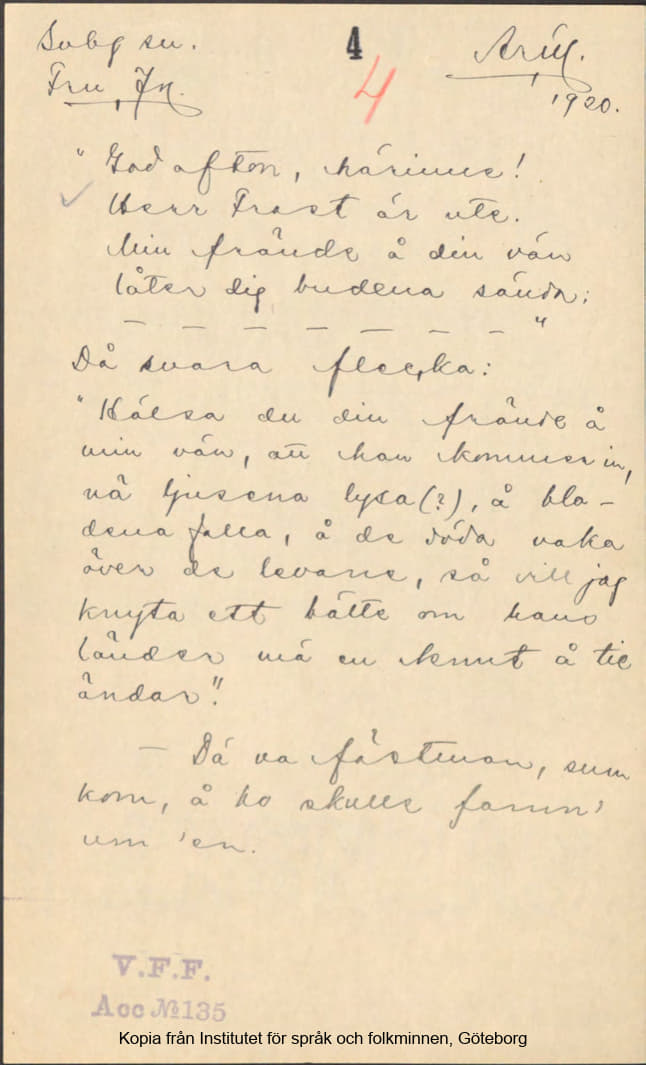 Svbg sn.
4
4
Fru Jn.
1920.
"God afton, härinne!
Herr Frost är ute.
Min frände å din vän
låter dig budena sända:
— — — — — — — "
Då svara flecka:
"Hälsa du din frände å
min vän, att han kommer in,
nä ljusena lysa (?), å bla-
dena falla, å de döda vaka
över de levane, så vill jag
knyta ett bälte om hans
länder mä en knut å tie
ändar".
— Dä va fästman, sum
kom, å ho skulle famn'
um 'en.
V.F.F.
Acc № 135
Kopia från Institutet för språk och folkminnen, Göteborg